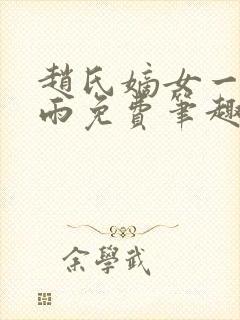 趙氏嫡女一
雨免費筆趣
余學武